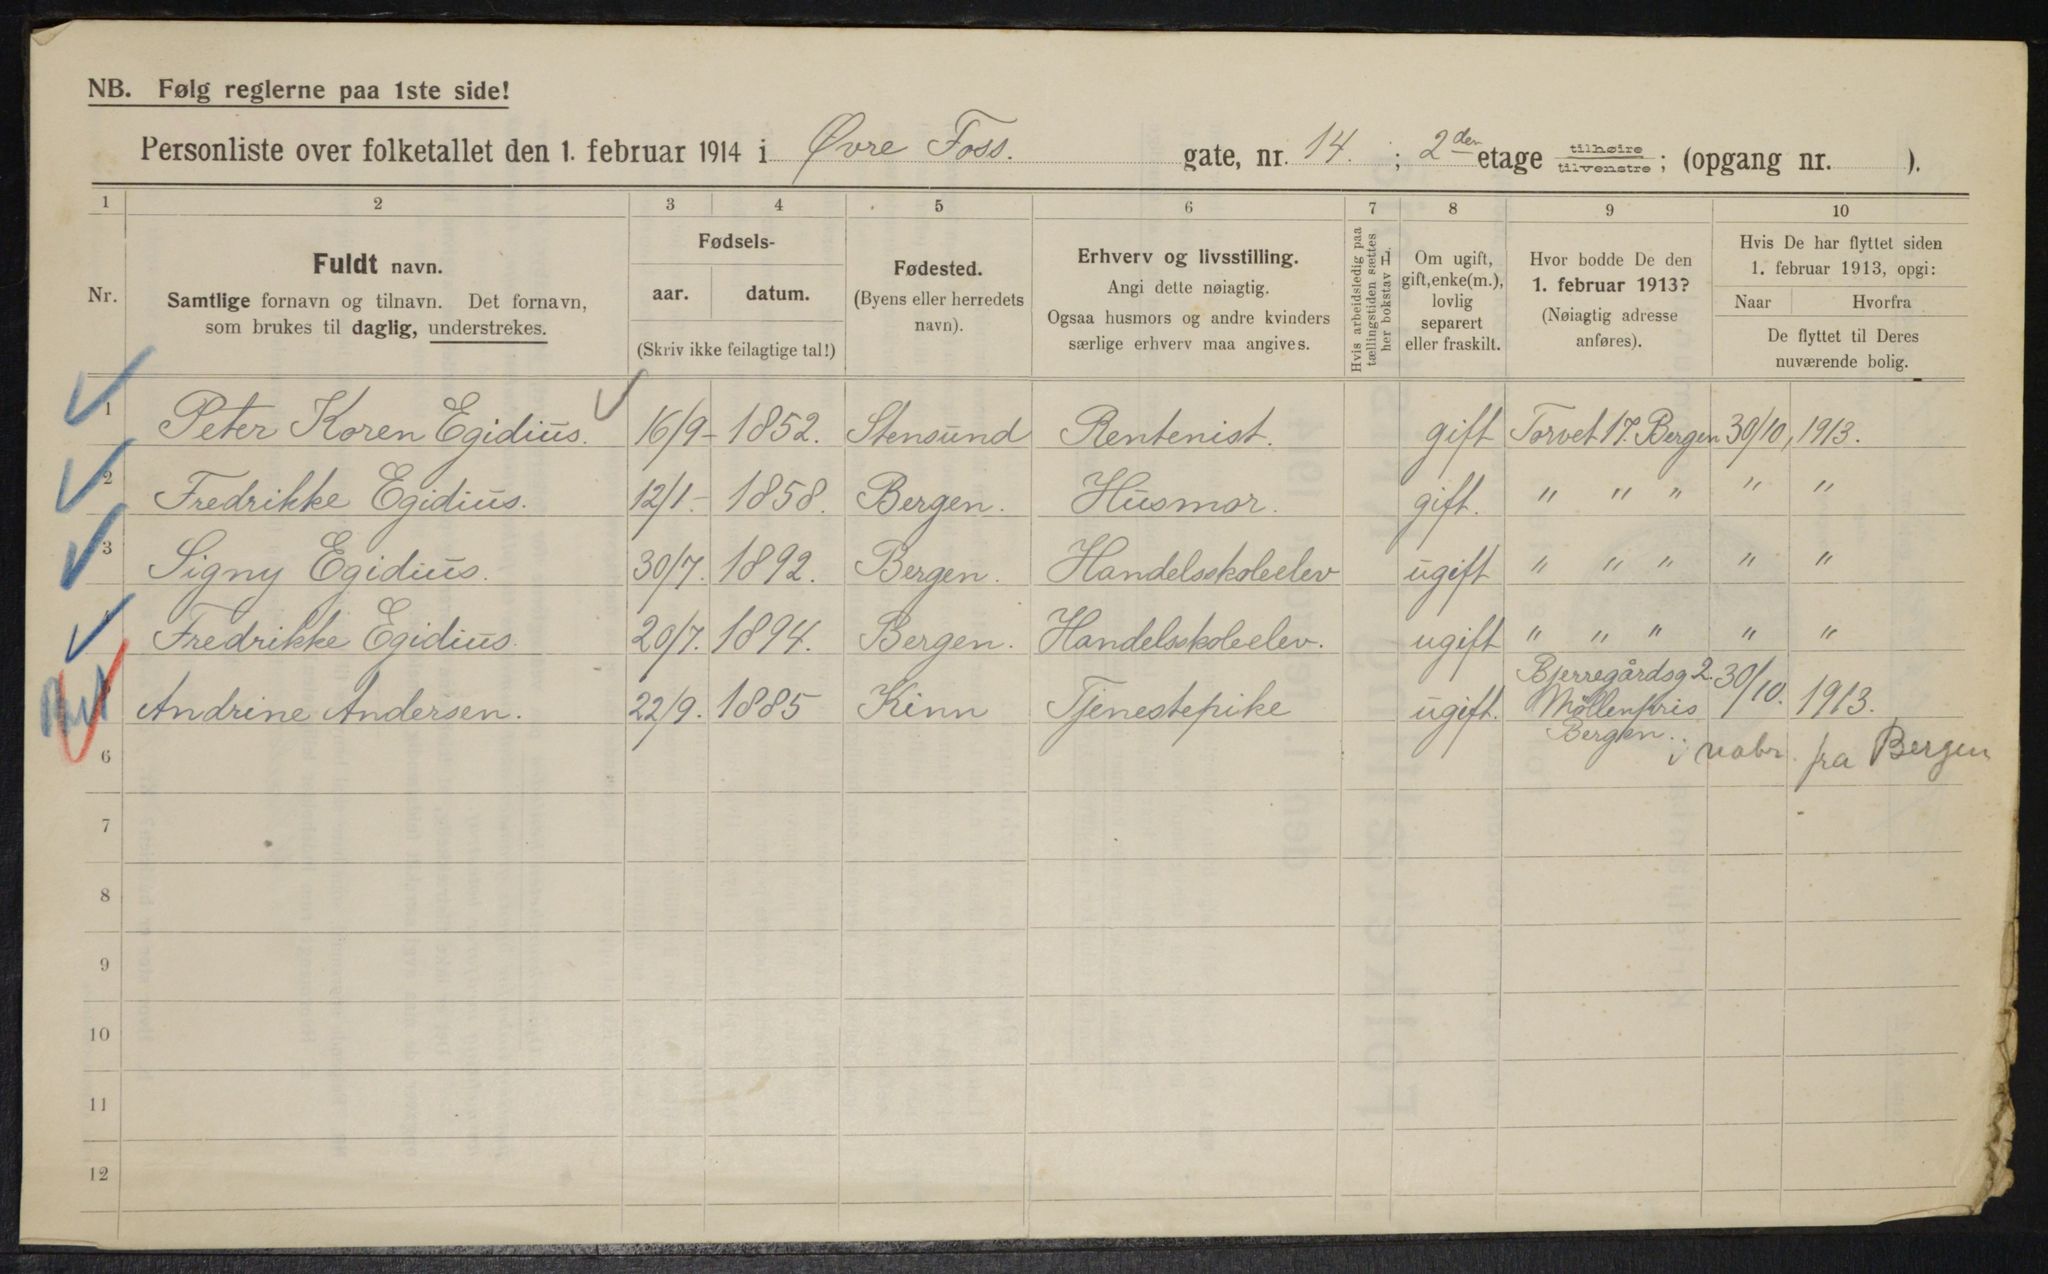 NB. Følg reglerne paa 1ste side!
Personliste over folketallet den 1. februar 1914 i Øvre Foss. gate, nr. 14. ; 2den etage tilhøire/tilvenstre; (opgang nr. ).
1 2 3 4 5 6 7 8 9 10
Nr.
Fuldt navn.
Samtlige fornavn og tilnavn. Det fornavn,
som brukes til daglig, understrekes.
Fødsels-
aar. datum.
(Skriv ikke feilagtige tal!)
Fødested.
(Byens eller herredets
navn).
Erhverv og livsstilling.
Angi dette nøiagtig.
Ogsaa husmors og andre kvinders
særlige erhverv maa angives.
Hvis arbeidsledig paa
tællingstiden sættes
her bokstav L.
Om ugift,
gift, enke(m.),
lovlig
separert
eller fraskilt.
Hvor bodde De den
1. februar 1913?
(Nøiagtig adresse
anføres).
Hvis De har flyttet siden
1. februar 1913, opgi:
Naar Hvorfra
De flyttet til Deres
nuværende bolig.
1 Peter Koren Egidius. 16/9- 1852. Stensund Rentenist. gift Torvet 17. Bergen 30/10, 1913.
2 Fredrikke Egidius. 12/1- 1858. Bergen. Husmor. gift. " " " " "
3 Signy Egidius. 30/7. 1892. Bergen. Handelsskoleelev ugift " " " " "
4 Fredrikke Egidius. 20/7. 1894. Bergen. Handelsskoleelev. ugift " " " " "
5 Andrine Andersen. 22/9. 1885 Kinn Tjenestepike ugift. Bjerregårdsg 2. 30/10. 1913.
Møllenpris
Bergen.
6 i novbr. fra Bergen
7
8
9
10
11
12